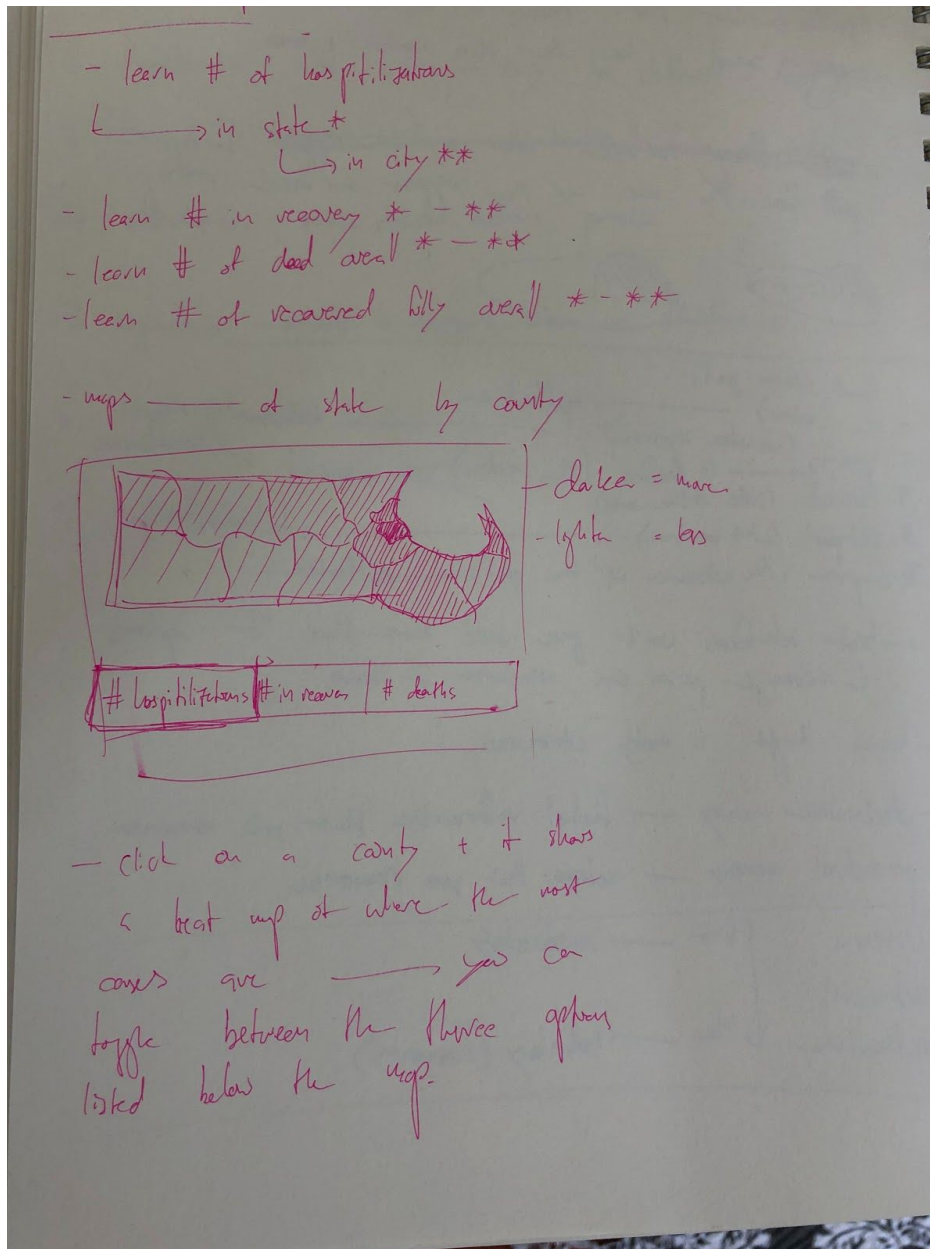 - learn # of hospitilizations
→ in state *
→ in city **
- learn # in recovery * - **
- learn # of dead overall * - **
- learn # of recovered fully overall * - **
- maps —— of state by county
- darker = more
- lighter = less
# hospitilizations # in recovery # deaths
— click on a county + it shows
a heat map of where the most
cases are ——→ you can
toggle between the three options
listed below the map.